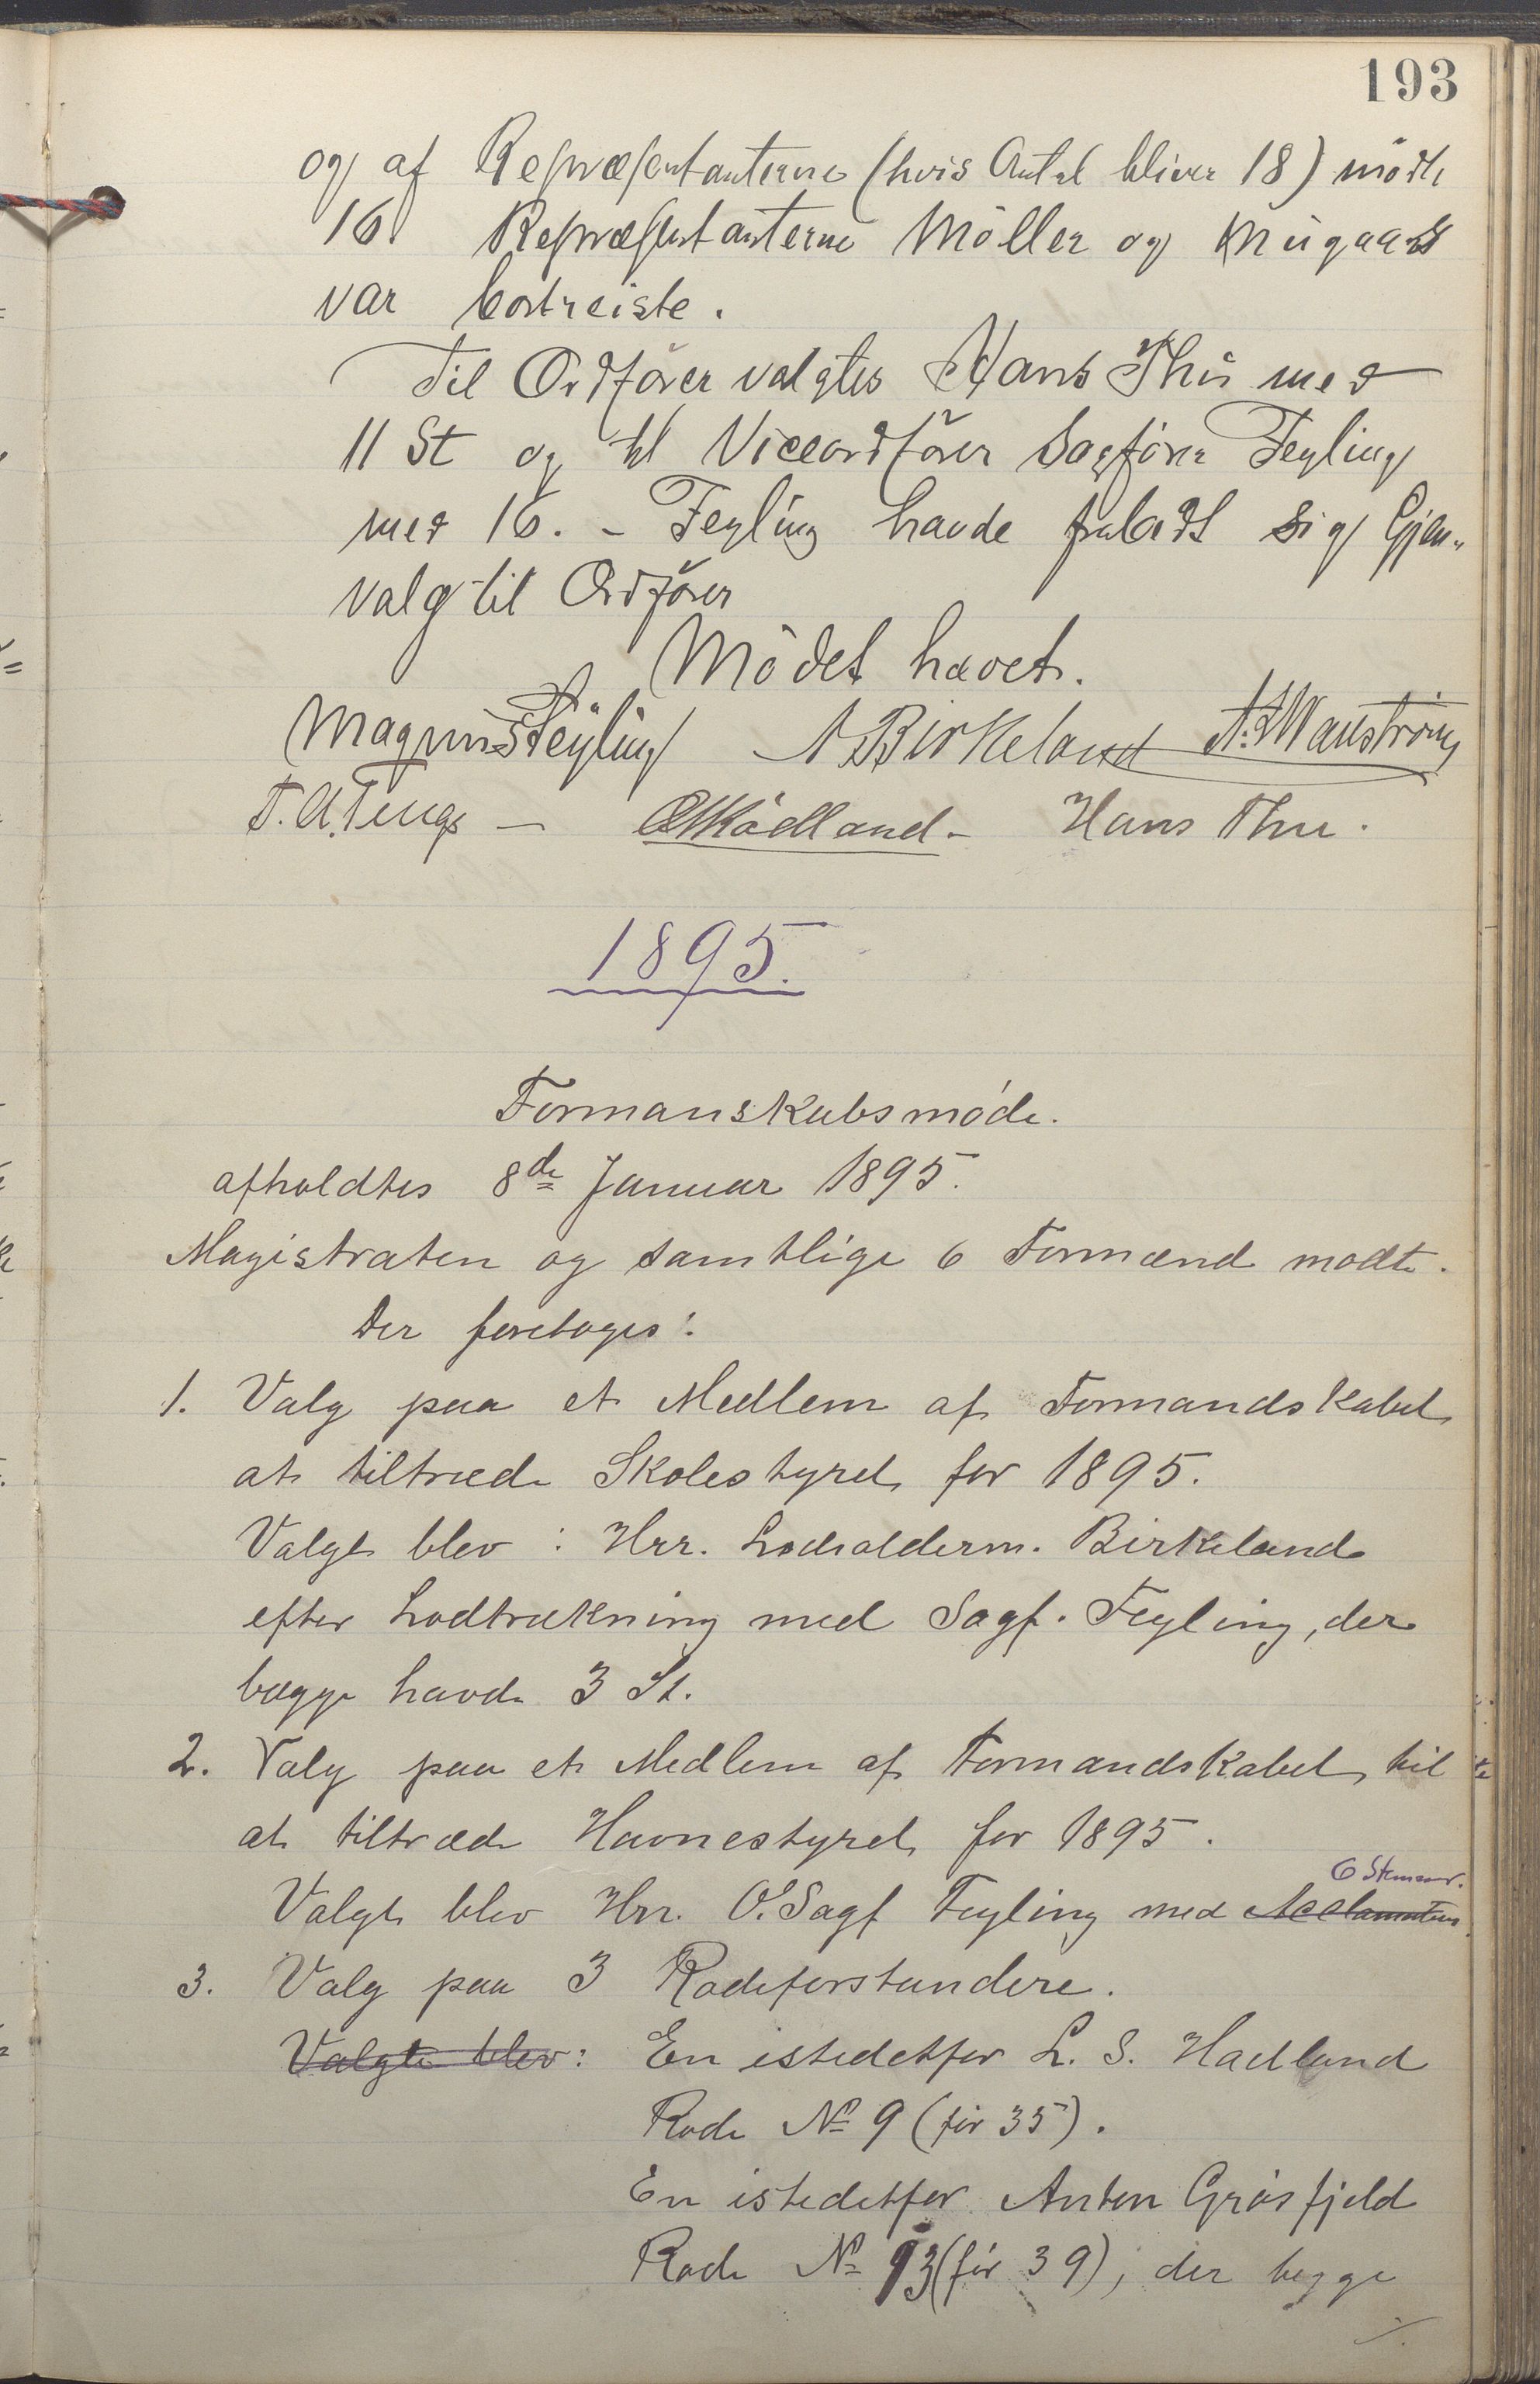 193
og af Repræsentanterne (hvis Antal bliver 18) mødte
16. Repræsentanterne Møller og Mügaard
var bortreiste.
Til Ordfører valgtes Hans Thu med
11 St og til Viceordfører Sagfører Feyling
med 16. - Feyling havde frabedt sig Gjen-
valg til Ordfører
Mødet hævet.
Magnus Feyling A Birkeland
T. A. Tengs — Hans Thu.
1895.
Formanskabsmøde.
afholdtes 8de Januar 1895.
Magistraten og samtlige 6 Formænd mødte.
Der foretoges:
1. Valg paa et Medlem af Formandskabet
at tiltræde Skolestyret for 1895.
Valgt blev: Hrr. Lodsolderm. Birkeland
efter Lodtrækning med Sagf. Feyling, der
begge havde 3 St.
2. Valg paa et Medlem af Formandskabet til
at tiltræde Havnestyret for 1895.
6 Stemmer.
Valgt blev Hrr. O. Sagf Feyling med Acclamation
3. Valg paa 3 Rodeforstandere.
Valgte blev: En istedetfor L. S. Hadland
Rode № 9 (før 35).
En istedetfor Anton Grøsfjeld
Rode № 13 (før 39), der begge
./.